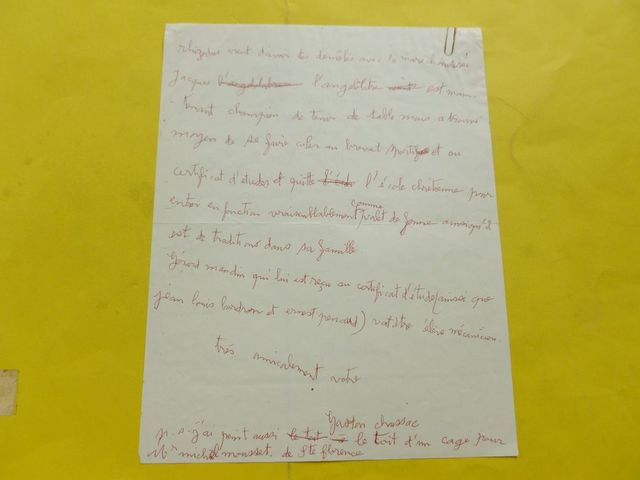 vient d'avoir des démêlés avec la maréchaussée
Jacques l'angélitre est main
tenant champion de tennis de table mais a trouvé
moyen de se faire coler au brevet sportif et au
certificat d'études et quitte l'école chrétienne pour
entrer en fonction vraisemblablement comme valet de ferme ainsi qu'il
est de traditions dans sa famille
gérard mandin qui lui est reçu au certificat d'étude (ainsi que
jean louis et ernest renaud) va être élève mécanicien
très amicalement votre
gaston chaissac
p.s. j'ai peint aussi le toit d'une cage pour
Mr michel mousset. de Ste florence